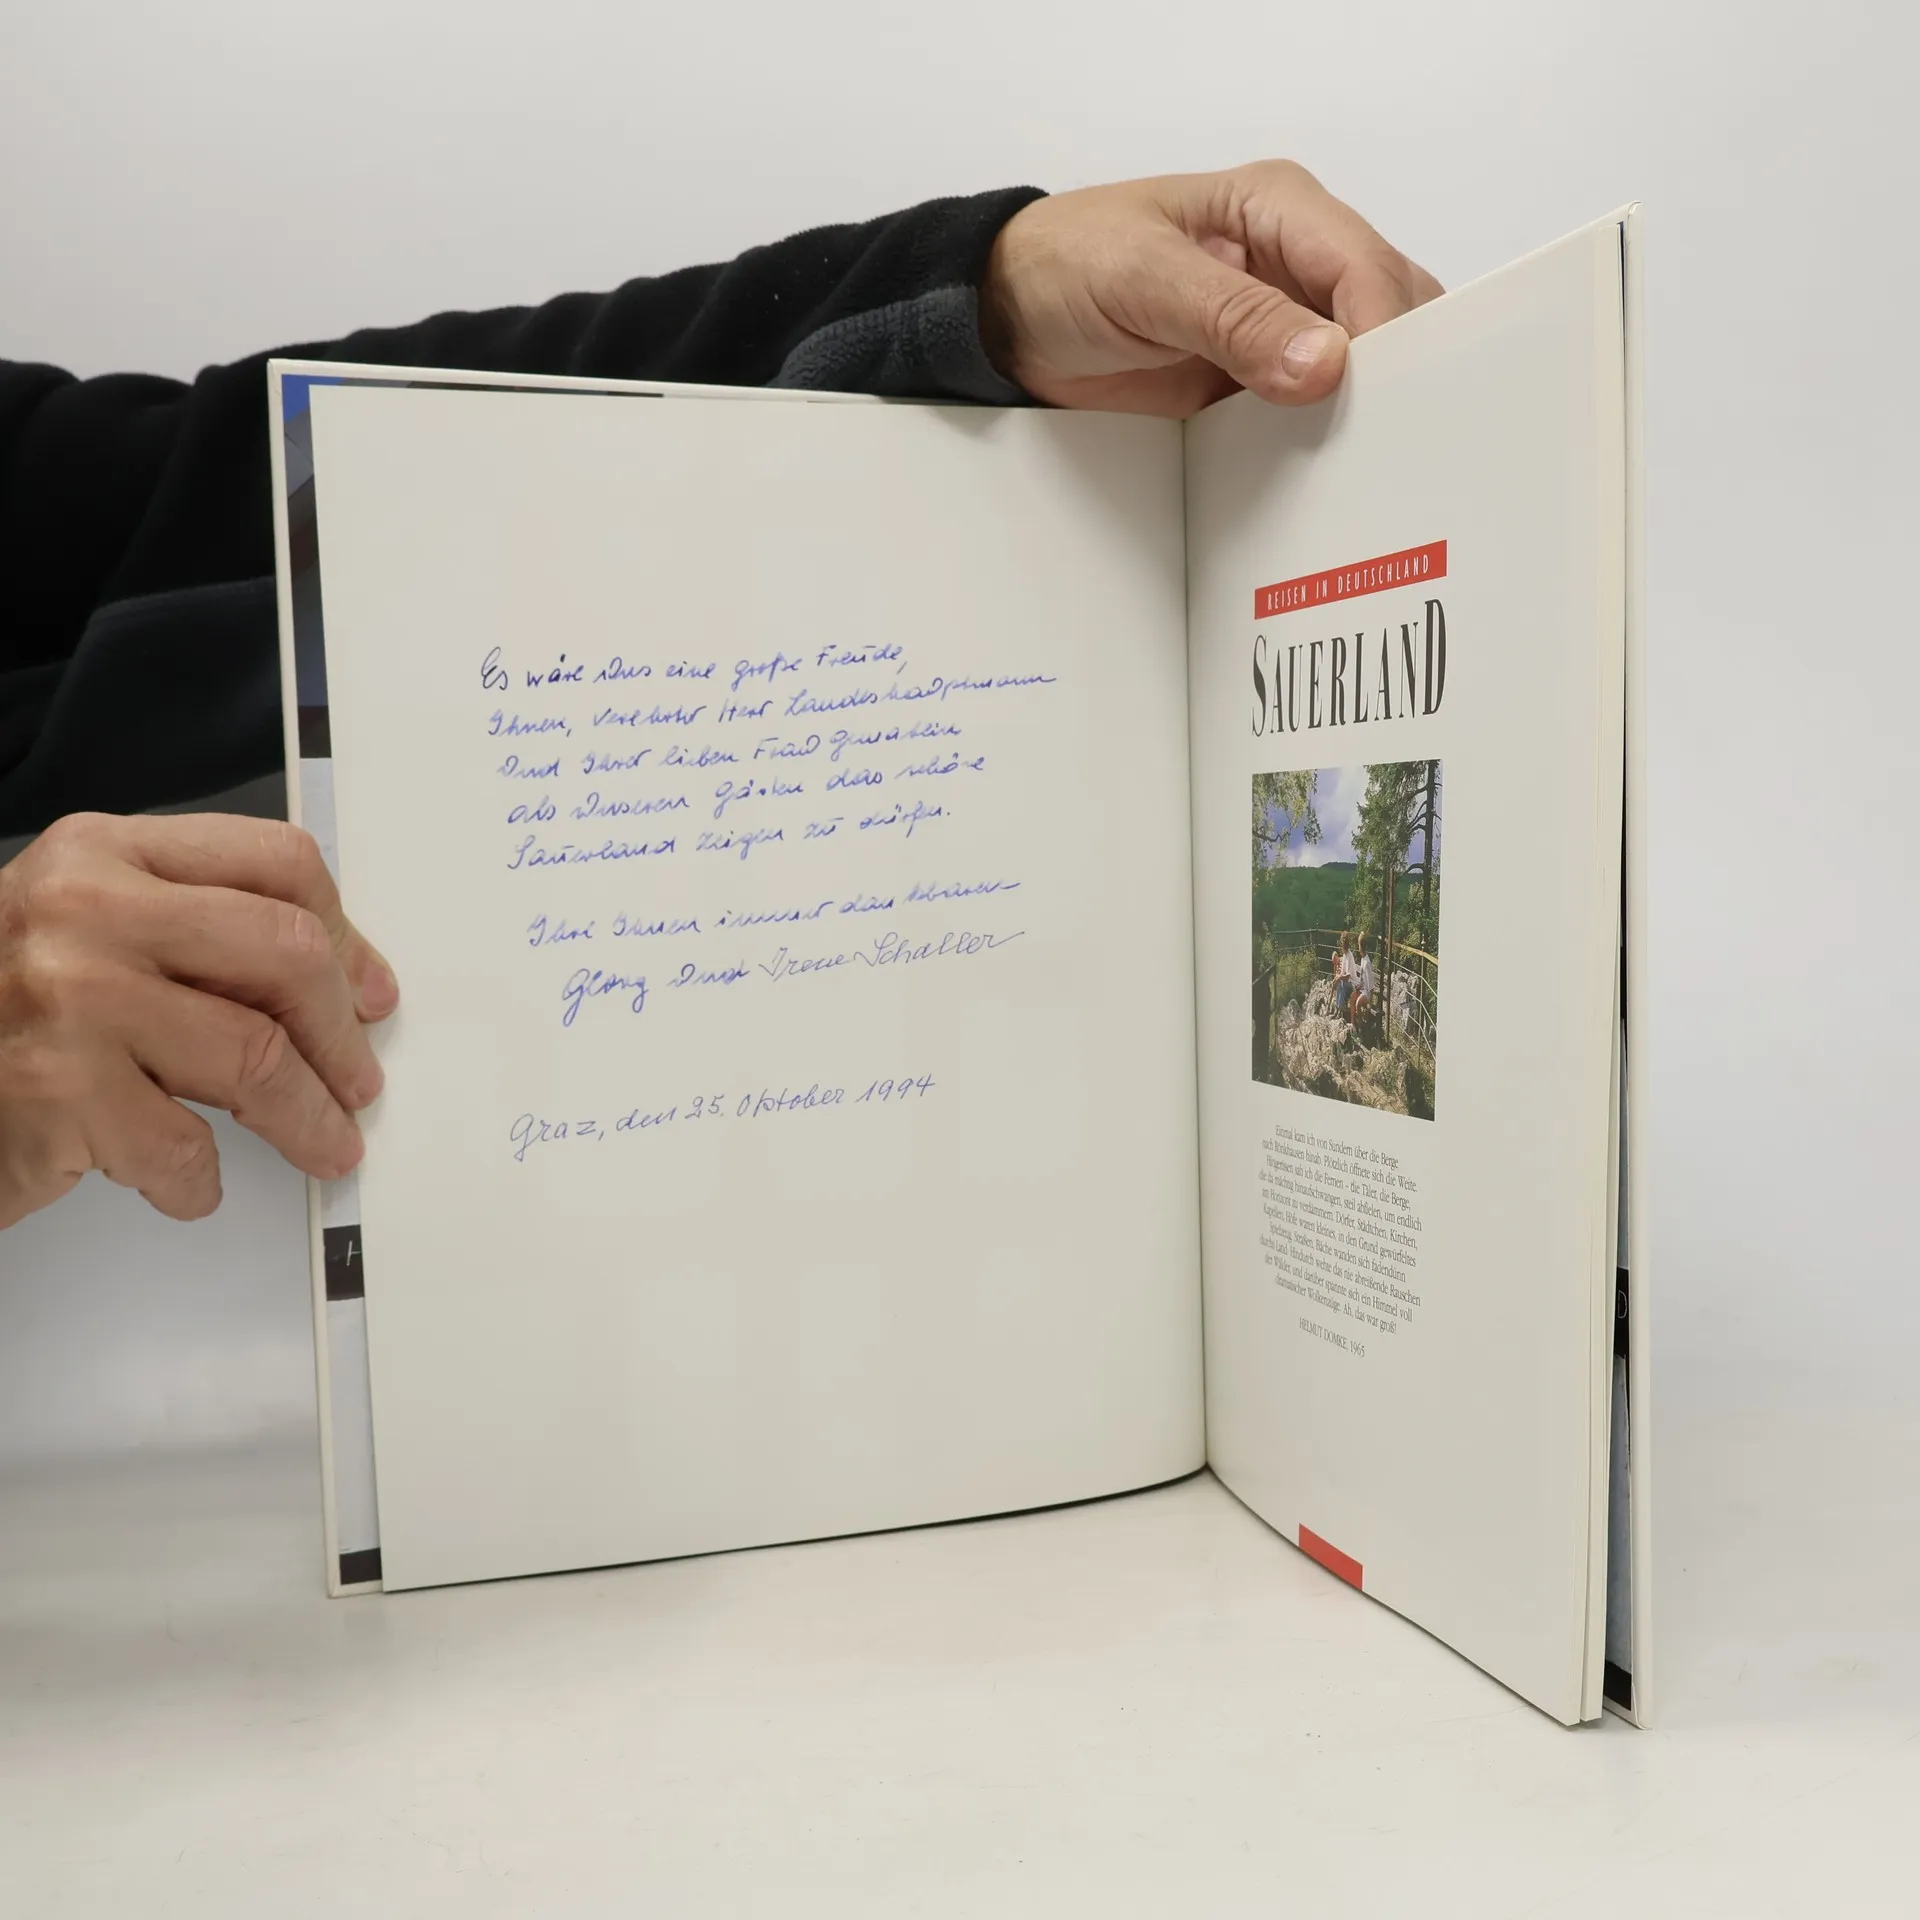 Es wäre uns eine große Freude,
Ihnen, verehrter Herr Landeshauptmann
und Ihrer lieben Frau Gemahlin
als unseren Gästen das schöne
Sauerland zeigen zu dürfen.
Ihre Ihnen immer dankbaren
Georg und Irene Schaller
Graz, den 25. Oktober 1994
REISEN IN DEUTSCHLAND
SAUERLAND
Einmal kam ich von Sundern über die Berge
nach Rönkhausen hinab. Plötzlich öffnete sich die Weite.
Hingerissen sah ich die Fernen – die Täler, die Berge,
die da mächtig hinaufschwangen, steil abfielen, um endlich
im Horizont zu verdämmern. Dörfer, Städtchen, Kirchen,
Kapellen, Höfe waren kleines, in den Grund gewürfeltes
Spielzeug. Straßen, Bäche wanden sich fadendünn
durchs Land. Hindurch wehte das nie abreißende Rauschen
der Wälder, und darüber spannte sich ein Himmel voll
dramatischer Wolkenzüge. Ah, das war groß!
HELMUT DOMKE, 1965